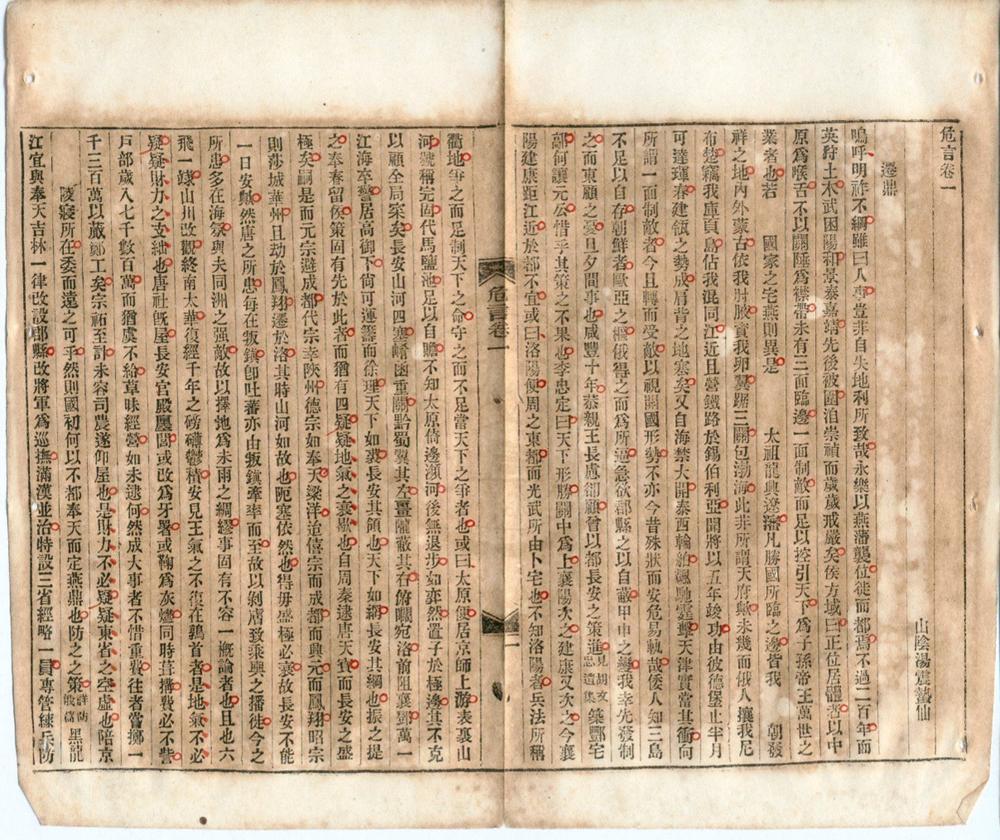 危言卷一
山陰湯震蟄仙
遷鼎
嗚呼明祚不綱雖曰人事豈非自失地利所致哉永樂以燕藩襲位徙而都焉不過二百年而
英狩土木武困陽和景泰嘉靖先後被圍泊崇禎而歲歲戒嚴矣侯方域曰正位居體者以中
原爲喉舌不以關陲爲襟帶未有三面臨邊一面制敵而足以控引天下爲子孫帝王萬世之
業者也若 國家之宅燕則異是 太祖龍興遼瀋凡勝國所臨之邊皆我 朝發
祥之地內外蒙古依我肘腋實我卵翼踞三關包渤海此非所謂天府與未幾而俄人攘我尼
布楚竊我庫頁島佔我混同江近且營鐵路於錫伯利亞開將以五年竣功由彼德堡止半月
可達琿春建瓴之勢成肩背之地塞矣又自海禁大開泰西輪舶飆馳霆擊天津實當其衝向
所謂一面制敵者今且轉而受敵以視關國形勢不亦今昔殊狀而安危易軌哉倭人知三島
不足以自存朝鮮者歐亞之樞俄得之而爲所逼急欲郡縣之以自蔽甲申之變我幸先發制
之而東顧之憂旦夕間事也咸豐十年恭親王長慮卻顧曾以都長安之策進見胡文忠遺集築酆宅
鎬何讓元公惜乎其策之不果也李忠定曰天下形勝關中爲上襄陽次之建康又次之今襄
陽建康距江近於都不宜或曰洛陽便周之東都而光武所由卜宅也不知洛陽者兵法所稱
危言卷一
一
衢地爭之而足制天下之命守之而不足當天下之爭者也或曰太原便居京師上游表裏山
河號稱完固代馬鹽池足以自贍不知太原倚邊瀕河後無退步如弈然置子於極邊其不克
以顧全局案矣長安山河四塞崤函重關黔蜀翼其左疆隴蔽其右俯瞰宛洛前阻襄鄧萬一
江海卒警居高御下尚可運籌而徐理天下如裘長安其領也天下如網長安其綱也振之提
之奉春留侯策固有先於此者而猶有四疑疑地氣之衰歇也自周秦逮唐天寶而長安之盛
極矣嗣是而元宗避成都代宗幸陝州德宗如奉天梁洋迨僖宗而成都而興元而鳳翔昭宗
則莎城華州且劫於鳳翔遷於洛其時山河如故也阨塞依然也得毋盛極必衰故長安不能
一日安歟然唐之所患每在叛鎮卽吐蕃亦由叛鎮牽率而至故以剝膚致乘輿之播徙今之
所患多在海氛與夫同洲之强敵故以擇地爲未雨之綢繆事固有不容一槪論者也且也六
飛一莅山川改觀終南太華復經千年之磅礴鬱積安見王氣之不復在鶉首者是地氣不必
疑疑財力之支絀也唐社旣屋長安官殿廛閭或改爲牙署或鞠爲灰燼同時葺搆費必不訾
戶部歲入七千數百萬而猶虞不給草昧經營如未逮何然成大事者不惜重費往者嘗擲一
千三百萬以藏鄭工矣宗祏至計未容司農遂仰屋也是財力不必疑疑東省之空虛也陪京
陵寢所在委而遠之可乎然則國初何以不都奉天而定燕鼎也防之之策詳防俄篇黑龍
江宜與奉天吉林一律改設郡縣改將軍爲巡撫滿漢並治特設三省經略一員專管練兵防